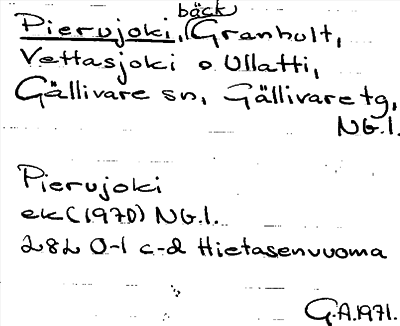 bäck
Pierujoki, Granhult,
Vettasjoki o Ullatti,
Gällivare sn, Gällivare tg,
NG.l.
Pierujoki
ek (1970) NG.l.
28L 0-1 c-d Hietasenvuoma
G.A.1971.